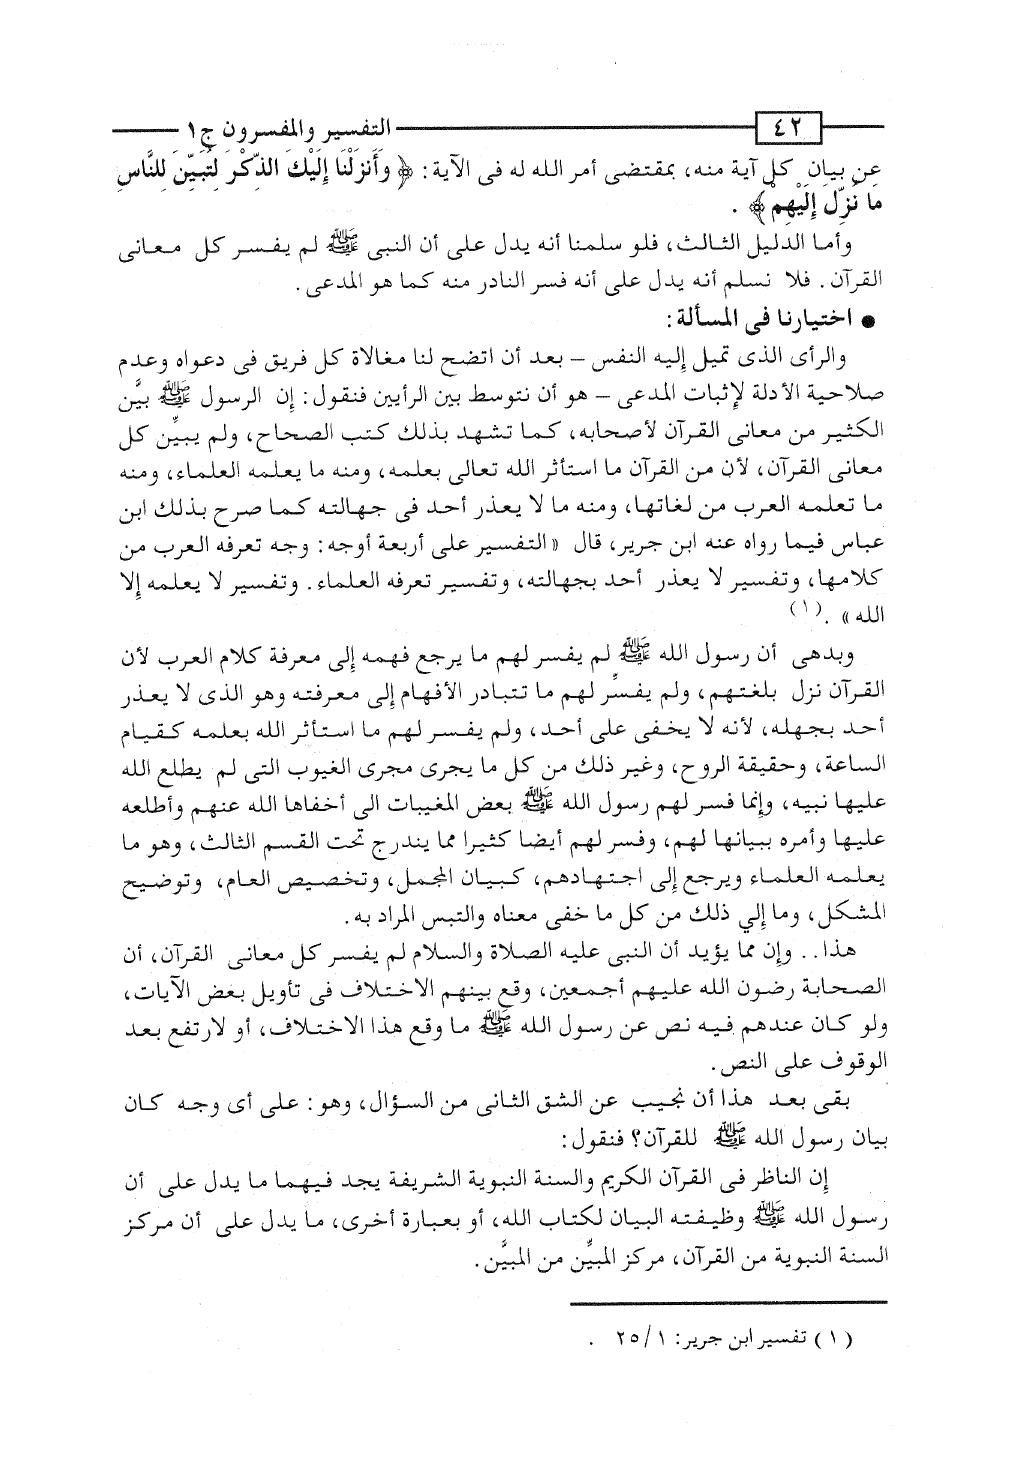 ٤٢ التفسير والمفسرون ج١
عن بيان كل آية منه، بمقتضى أمر الله له فى الآية: ﴿ وَأَنزَلْنَا إِلَيْكَ الذِّكْرَ لِتُبَيِّنَ لِلنَّاسِ
مَا نُزِّلَ إِلَيْهِمْ ﴾ .
وأما الدليل الثالث، فلو سلمنا أنه يدل على أن النبى ﷺ لم يفسر كل معانى
القرآن. فلا نسلم أنه يدل على أنه فسر النادر منه كما هو المدعى.
● اختيارنا فى المسألة:
والرأى الذى تميل إليه النفس – بعد أن اتضح لنا مغالاة كل فريق فى دعواه وعدم
صلاحية الأدلة لإثبات المدعى – هو أن نتوسط بين الرأيين فنقول: إن الرسول ﷺ بيَّن
الكثير من معانى القرآن لأصحابه، كما تشهد بذلك كتب الصحاح، ولم يبيِّن كل
معانى القرآن، لأن من القرآن ما استأثر الله تعالى بعلمه، ومنه ما يعلمه العلماء، ومنه
ما تعلمه العرب من لغاتها، ومنه ما لا يعذر أحد فى جهالته كما صرح بذلك ابن
عباس فيما رواه عنه ابن جرير، قال « التفسير على أربعة أوجه: وجه تعرفه العرب من
كلامها، وتفسير لا يعذر أحد بجهالته، وتفسير تعرفه العلماء. وتفسير لا يعلمه إلا
الله » .(١)
وبدهى أن رسول الله ﷺ لم يفسر لهم ما يرجع فهمه إلى معرفة كلام العرب لأن
القرآن نزل بلغتهم، ولم يفسِّر لهم ما تتبادر الأفهام إلى معرفته وهو الذى لا يعذر
أحد بجهله، لأنه لا يخفى على أحد، ولم يفسر لهم ما استأثر الله بعلمه كقيام
الساعة، وحقيقة الروح، وغير ذلك من كل ما يجرى مجرى الغيوب التى لم يطلع الله
عليها نبيه، وإنما فسر لهم رسول الله ﷺ بعض المغيبات الى أخفاها الله عنهم وأطلعه
عليها وأمره ببيانها لهم، وفسر لهم أيضا كثيرا مما يندرج تحت القسم الثالث، وهو ما
يعلمه العلماء ويرجع إلى اجتهادهم، كبيان المجمل، وتخصيص العام، وتوضيح
المشكل، وما إلي ذلك من كل ما خفى معناه والتبس المراد به.
هذا.. وإن مما يؤيد أن النبى عليه الصلاة والسلام لم يفسر كل معانى القرآن، أن
الصحابة رضون الله عليهم أجمعين، وقع بينهم الاختلاف فى تأويل بعض الآيات،
ولو كان عندهم فيه نص عن رسول الله ﷺ ما وقع هذا الاختلاف، أو لارتفع بعد
الوقوف على النص.
بقى بعد هذا أن نجيب عن الشق الثانى من السؤال، وهو: على أى وجه كان
بيان رسول الله ﷺ للقرآن؟ فنقول:
إن الناظر فى القرآن الكريم والسنة النبوية الشريفة يجد فيهما ما يدل على أن
رسول الله ﷺ وظيفته البيان لكتاب الله، أو بعبارة أخرى، ما يدل على أن مركز
السنة النبوية من القرآن، مركز المبيِّن من المبيَّن.
(١) تفسير ابن جرير: ١/ ٢٥ .